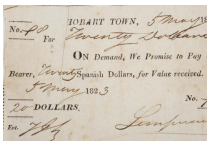 HOBART TOWN, 5 May 18
No. 98 For Twenty Dollars
ON Demand, We Promise to Pay
Bearer, Twenty Spanish Dollars, for Value received.
5 May 1823
No.
20 DOLLARS.
Ent.